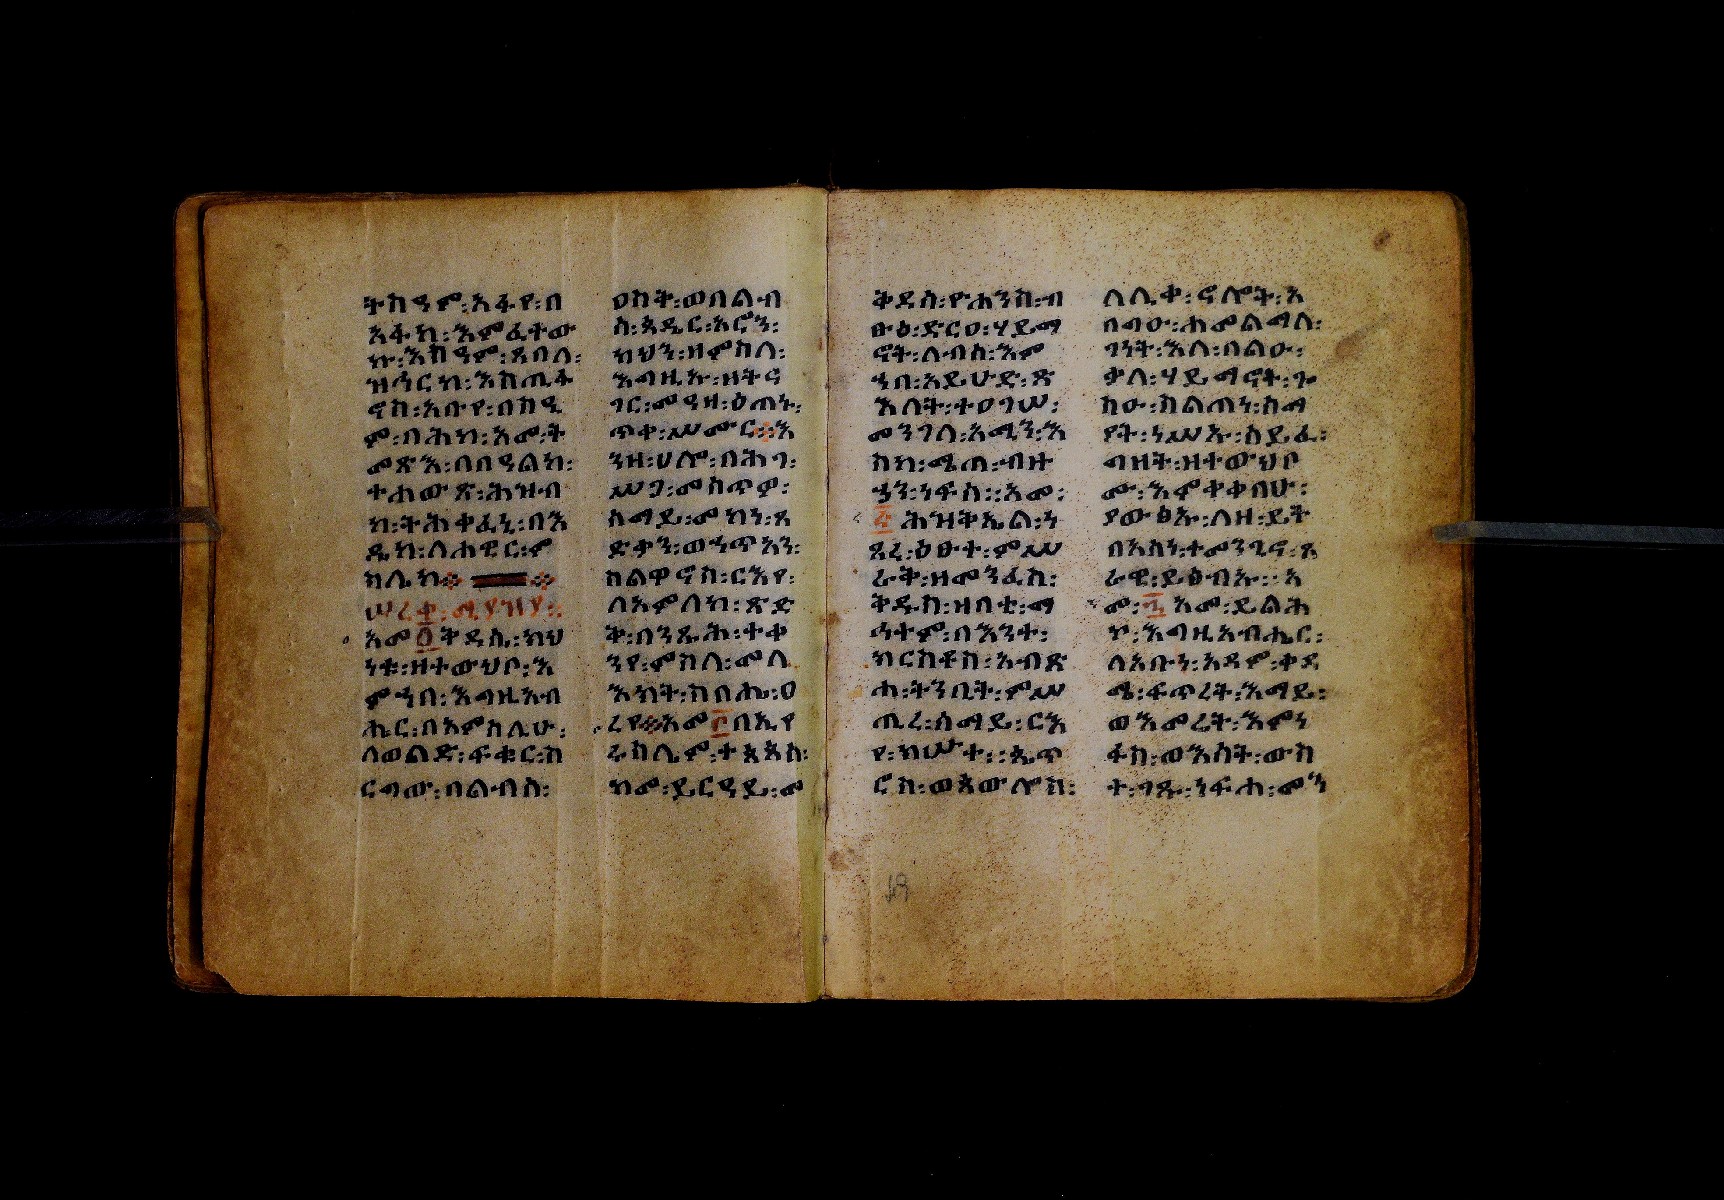 ትከዓም፡አፋየ፡በ
አፋከ፡እምፈተው
ኩ፡እከዓም፡ጸበለ፡
ዝኀርከ፡እከጢፋ
ኖከ፡አቡየ፡በከዲ
ም፡በሕከ፡አመ፡ት
መጽእ፡በበዓልከ፡
ተሐውጽ፡ሕዝብ
ከ፡ትሕቀፈኒ፡በእ
ዴከ፡ለሐዊር፡ም
ስሌከ
ሠረቀ፡ሚያዝያ፡
አመ፩ቅዱስ፡ካህ
ነቱ፡ዘተውህቦ፡እ
ምኀበ፡እግዚአብ
ሔር፡በአምሳሊሁ፡
ለወልድ፡ፍቁር፡ከ
ርጣው፡በልብስ፡
ዐከት፡ወበልብ
ስ፡ጳዴር፡አሮን፡
ካህን፡ዘምስለ፡
እግዚኡ፡ዘትኖ
ገር፡መዓዛ፡ዕጠኑ፡
ጥቀ፡ሠሙር፡እ
ንዘ፡ሀሎ፡በሕገ፡
ሠጋ፡መስጥዎ፡
ሰማይ፡መካነ፡ጸ
ድቃን፡ወኀጥአን፡
ከልዋኖስ፡ርእየ፡
ለአምላክ፡ጽድ
ቅ፡በንጹሕ፡ተቀ
ንየ፡ምስለ፡መላ
እክት፡ከበሔ፡ዐ
ረየ፡አመ፫በኢየ
ሩሳሌም፡ተጳጳሰ፡
ከመ፡ይርዳይ፡መ
ቅዳስ፡ዮሐንስ፡ብ
ፁዕ፡ድርዐ፡ሃይማ
ኖት፡ለብሰ፡እም
ኀበ፡አይሁድ፡ጽ
እለት፡ተዐገሠ፡
መንገለ፡አሚን፡እ
ስከ፡ሜጠ፡ብዙ
ኃን፡ነፍሰ፡፡አመ፡
፭ሕዝቅኤል፡ነ
ጸረ፡ዕፁተ፡ምሥ
ራቅ፡ዘመንፈስ፡
ቅዱስ፡ዘበቲ፡ማ
ኅተም፡በእንተ፡
ክርስቶስ፡አብጽ
ሐ፡ትንቢት፡ምሥ
ጢረ፡ሰማይ፡ርእ
የ፡ክሡተ፡፡ጴጥ
ሮስ፡ወጳውሎስ፡
ለሊቃ፡ኖሎት፡አ
በግዐ፡ሐመልማለ፡
ገነት፡እለ፡በልዑ፡
ቃለ፡ሃይማኖት፡ጉ
ስዑ፡ከልጠነ፡ሰማ
ያት፡ነሥኡ፡ሰይፈ፡
ግዘት፡ዘተውህቦ
ሙ፡እሞቀቀበሁ፡
ያውፅኡ፡ለዘ፡ይት
በአከነ፡ተመንጊኖ፡ጸ
ራዊ፡ይፅብኡ፡፡አ
መ፡፮አመ፡ይልሕ
ኮ፡እግዚአብሔር፡
ለአቡነ፡አዳም፡ቀዳ
ሜ፡ፍጥረት፡እማይ፡
ወእመሬት፡እምነ
ፋስ፡ወእሳት፡ውስ
ተ፡ገጹ፡ነፍሐ፡መን